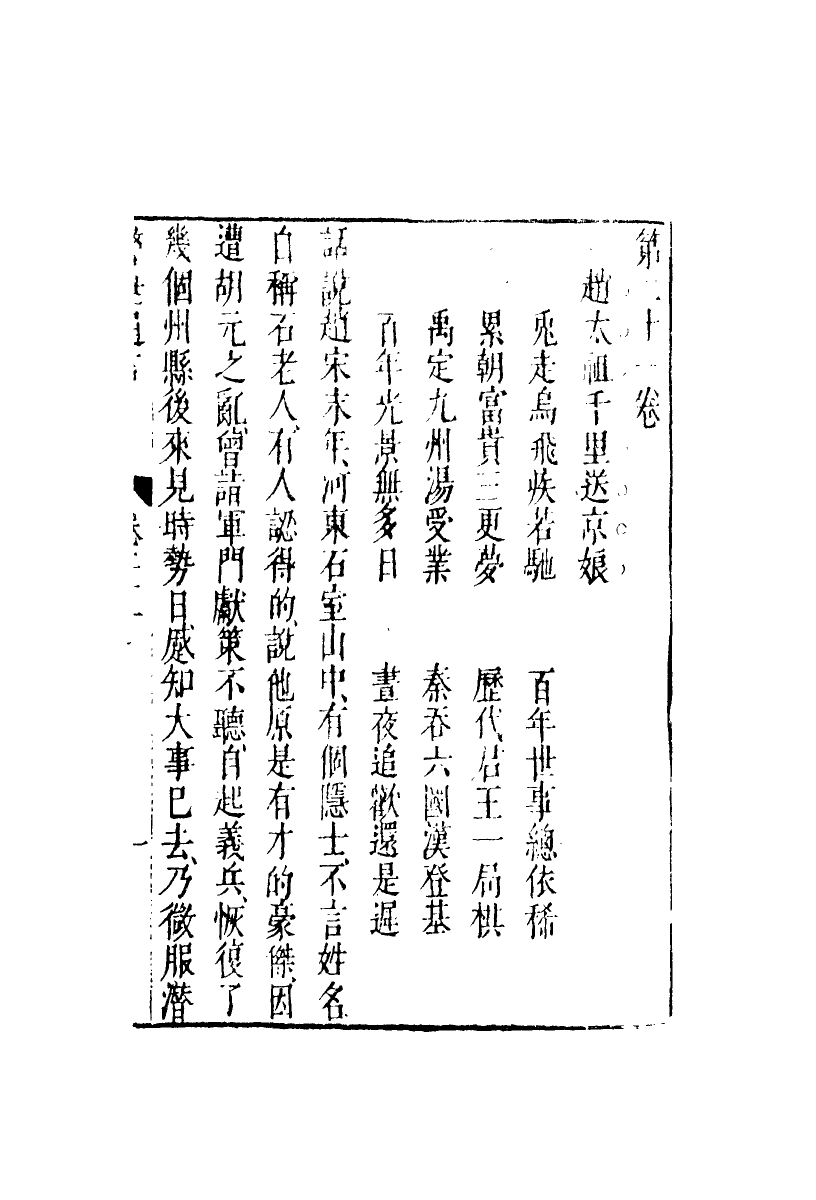 第二十一卷
趙太祖千里送京娘
兎走烏飛疾若馳　百年世事總依稀
累朝富貴三更夢　歷代君王一局棋
禹定九州湯受業　秦吞六國漢登基
百年光景無多日　晝夜追歡還是遲
話說趙宋末年、河東石室山中、有個隱士、不言姓名
自稱石老人、有人認得的、說他原是有才的豪傑、因
遭胡元之亂、曾詣軍門獻策不聽、自起義兵、恢復了
幾個州縣、後來見時勢日蹙、知大事已去、乃微服潛